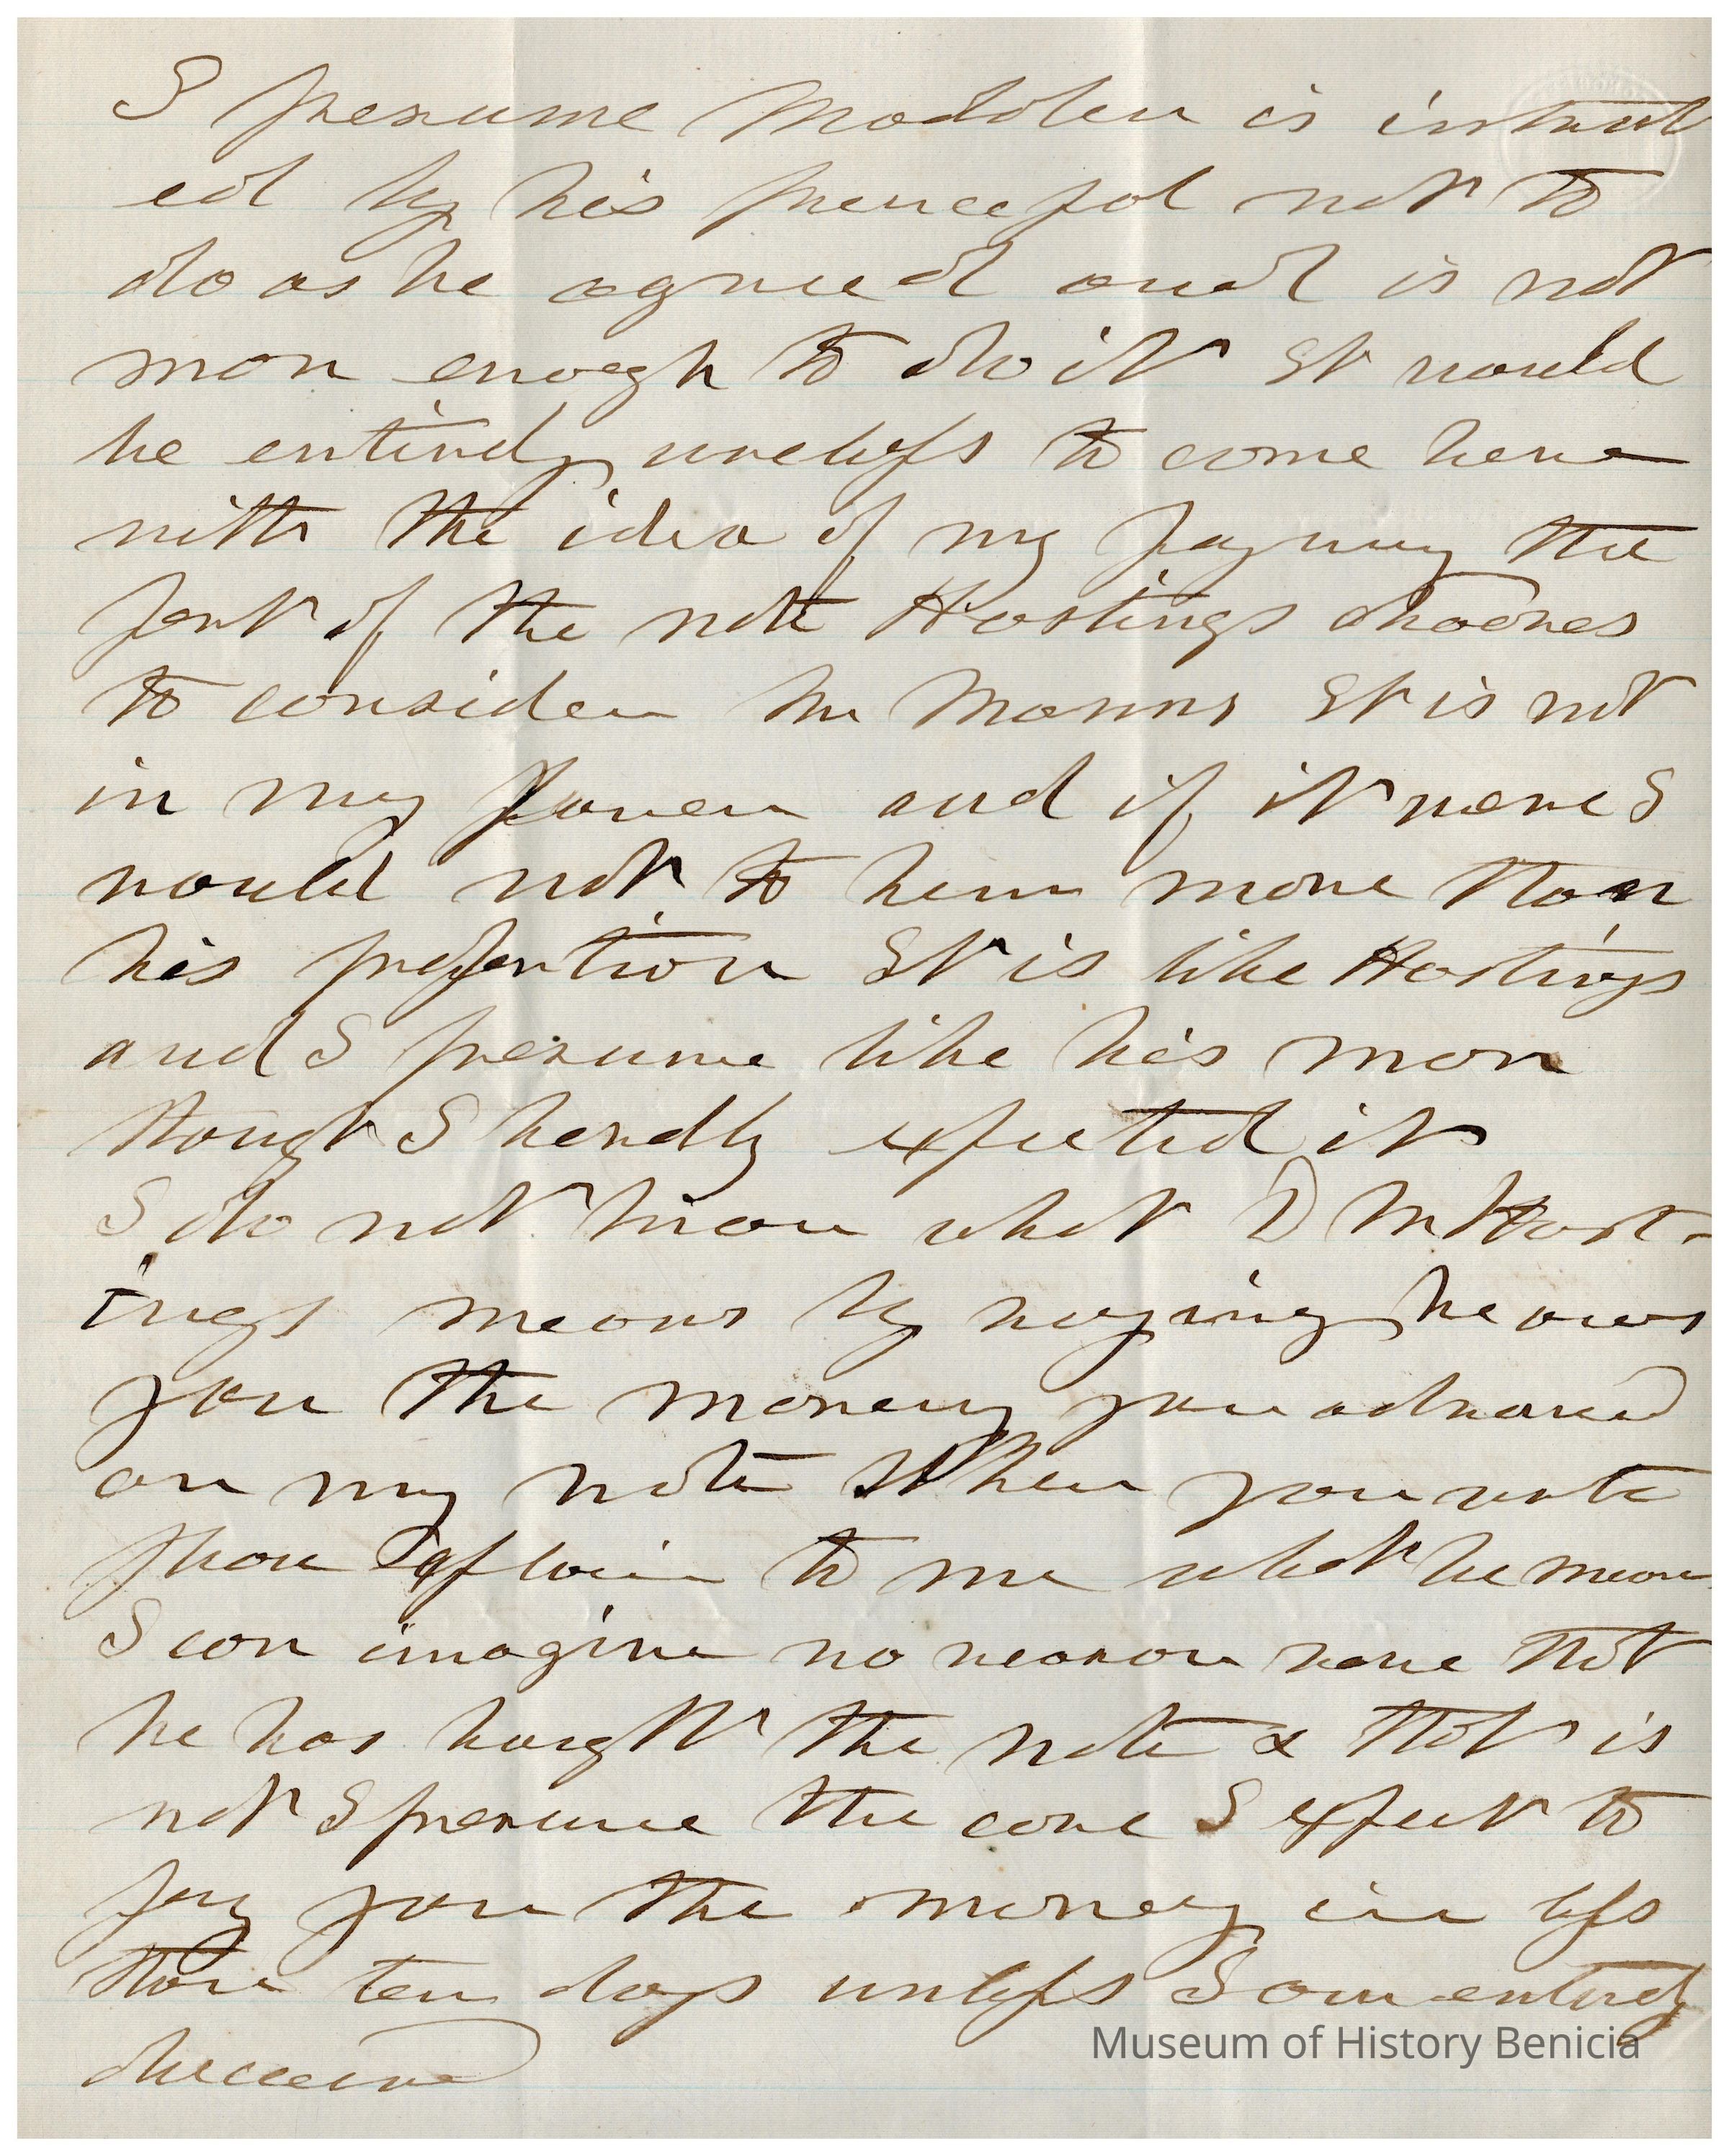 I presume Madden is instruct
ed by his principal not to
do as he agreed and is not
man enough to do it It would
be entirely useless to come here
with the idea of my paying the
part of the note Hastings chooses
to consider his Manns It is not
in my power and if it were I
would not to him more than
his proportion It is like Hastings
and I presume like his man
though I hardly expected it
I do not know what D M Hast-
ings means by saying he owes
you the money you advanced
on my note When you write
than explain to me what he means
I can imagine no reason save that
he has bought the note & that is
not I presume the case I expect to
pay you the money in less
than ten days unless I am entirely
deceived
Museum of History Benicia